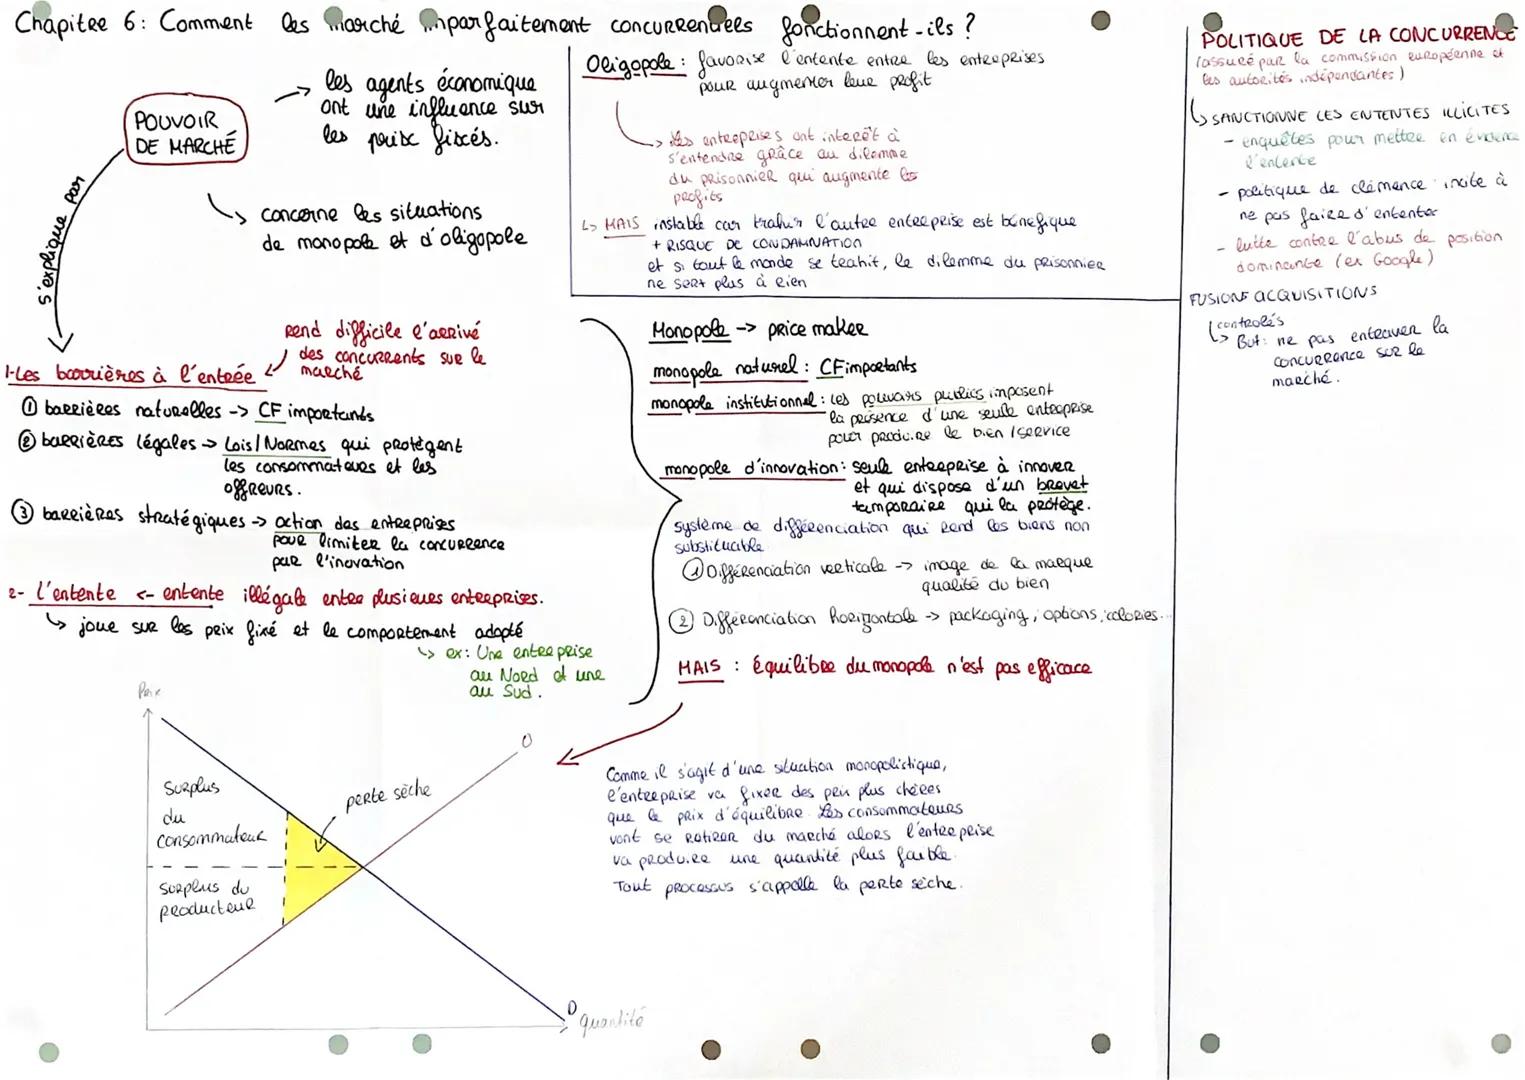 Chapitre 6: Comment les marché imparfaitement concurrentiels fonctionnent-ils ?
POUVOIR
DE MARCHÉ
les agents économique
ont une influence sur
les prix fixés.
concerne les situations
de monopole et d'oligopole
s'explique par
1-Les barrières à l'entrée
rend difficile l'arrivé
des concurrents sur le
marché
① barrières naturelles -> CF importants
② barrières légales -> Lois/Normes qui protègent
les consommateurs et les
offreurs.
③ barrières stratégiques -> action des entreprises
pour limiter la concurrence
par l'inovation
2- l'entente <- entente illégale entre plusieurs entreprises.
joue sur les prix fixé et le comportement adopté
ex: Une entreprise
au Nord et une
au Sud.
Prix
O
Surplus
du
consommateur
perte sèche
surplus du
producteur
D
quantité
Oligopole : favorise l'entente entre les entreprises
pour augmenter leur profit
les entreprises ont interêt à
s'entendre grâce au dilemme
du prisonnier qui augmente les
profits
MAIS instable car trahir l'autre entreprise est bénéfique
+ RISQUE DE CONDAMNATION
et si tout le monde se trahit, le dilemme du prisonnier
ne sert plus à rien
Monopole -> price maker
monopole naturel : CF importants
monopole institutionnel : les pouvoirs publics imposent
la présence d'une seule entreprise
pour produire le bien/service
monopole d'innovation : seule entreprise à innover
et qui dispose d'un brevet
temporaire qui la protège.
système de différenciation qui rend les biens non
substituable
① Différenciation verticale -> image de la marque
qualité du bien
② Différenciation horizontale -> packaging, options, colories...
MAIS : équilibre du monopole n'est pas efficace
Comme il s'agit d'une situation monopolistique,
l'entreprise va fixer des prix plus chères
que le prix d'équilibre. Les consommateurs
vont se retirer du marché alors l'entreprise
va produire une quantité plus faible.
Tout processus s'appelle la perte sèche.
POLITIQUE DE LA CONCURRENCE
(assuré par la commission européenne et
les autorités indépendantes)
SANCTIONNE LES ENTENTES ILLICITES
- enquêtes pour mettre en évidence
l'entente
- politique de clémence incite à
ne pas faire d'ententes
- lutte contre l'abus de position
dominante (ex Google)
FUSIONS ACQUISITIONS
controlés
But: ne pas entraver la
concurrence sur le
marché.